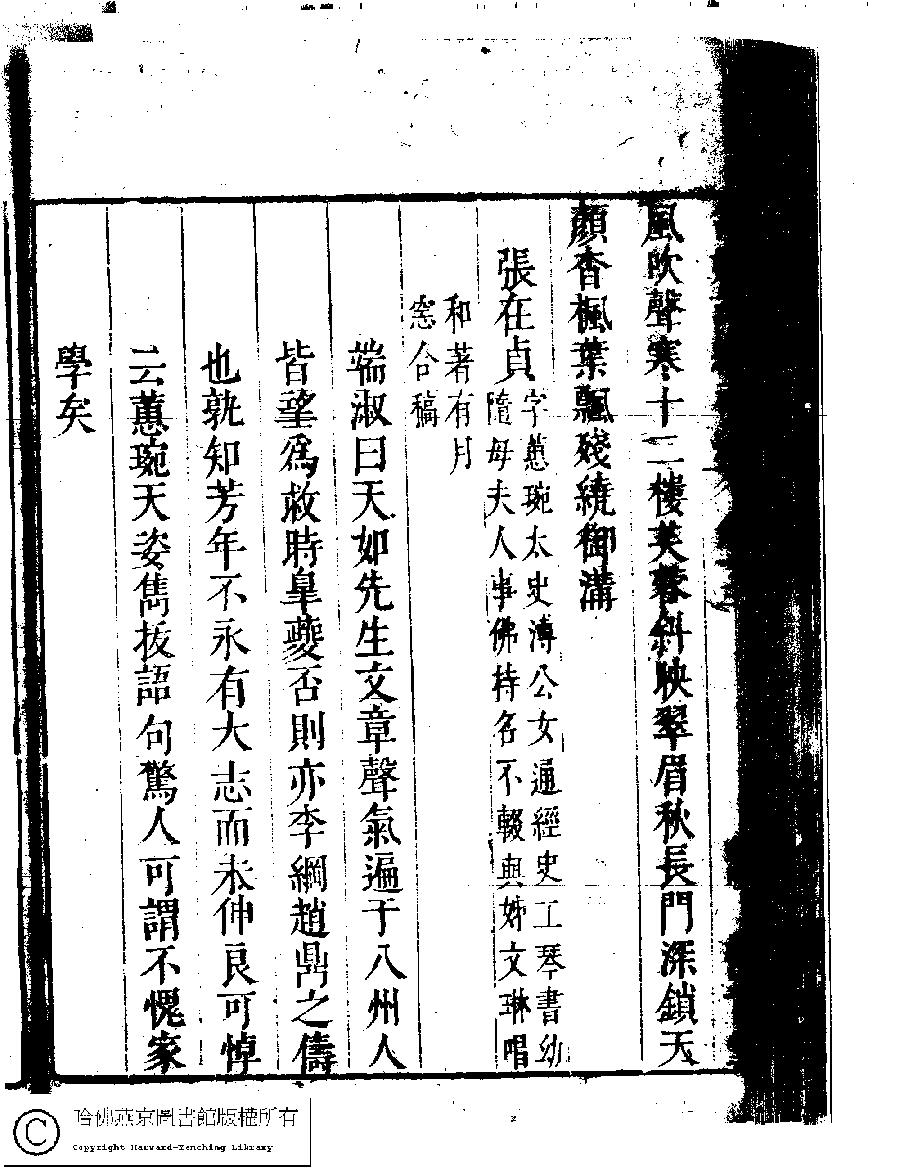 風吹聲寒十二樓芙蓉斜映翠眉秋長門深鎖天
顏杳楓葉飄殘繞御溝
張在貞
字蕙琬太史溥公女通經史工琴書幼
隨母夫人事佛持名不輟與姊文琳唱
和著有月
窓合稿
端淑曰天如先生文章聲氣遍于八州人
皆望爲救時皐夔否則亦李綱趙鼎之儔
也孰知芳年不永有大志而未伸良可悼
云蕙琬天姿雋拔語句驚人可謂不愧家
學矣
哈佛燕京圖書館版權所有
Copyright Harvard-Yenching Library